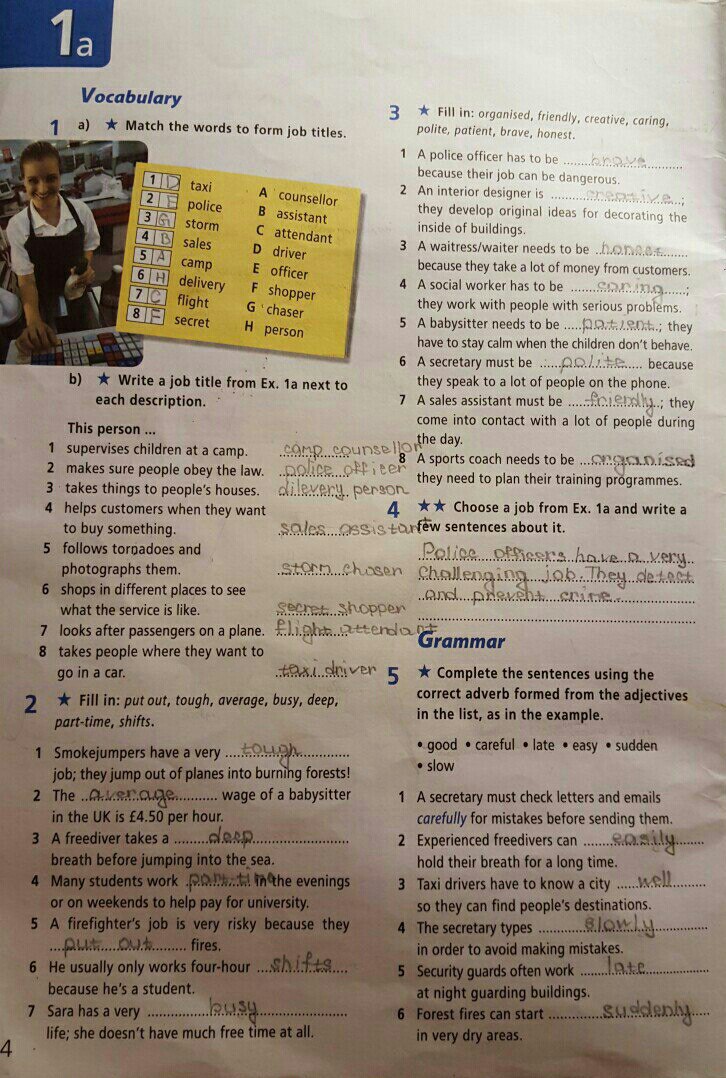 1a
Vocabulary
1 a) ★ Match the words to form job titles.
1 D taxi
2 E police
3 G storm
4 B sales
5 A camp
6 H delivery
7 C flight
8 F secret
A counsellor
B assistant
C attendant
D driver
E officer
F shopper
G chaser
H person
b) ★ Write a job title from Ex. 1a next to
each description.
This person ...
1 supervises children at a camp. camp counsellor
2 makes sure people obey the law. police officer
3 takes things to people's houses. dilevery person
4 helps customers when they want
to buy something. sales assistant
5 follows tornadoes and
photographs them. storm chosen
6 shops in different places to see
what the service is like. secret shopper
7 looks after passengers on a plane. flight attendant
8 takes people where they want to
go in a car. taxi driver
2 ★ Fill in: put out, tough, average, busy, deep,
part-time, shifts.
1 Smokejumpers have a very tough
job; they jump out of planes into burning forests!
2 The average wage of a babysitter
in the UK is £4.50 per hour.
3 A freediver takes a deep
breath before jumping into the sea.
4 Many students work part-time in the evenings
or on weekends to help pay for university.
5 A firefighter's job is very risky because they
put out fires.
6 He usually only works four-hour shifts
because he's a student.
7 Sara has a very busy
life; she doesn't have much free time at all.
4
3 ★ Fill in: organised, friendly, creative, caring,
polite, patient, brave, honest.
1 A police officer has to be brave
because their job can be dangerous.
2 An interior designer is creative;
they develop original ideas for decorating the
inside of buildings.
3 A waitress/waiter needs to be honest
because they take a lot of money from customers.
4 A social worker has to be caring;
they work with people with serious problems.
5 A babysitter needs to be patient; they
have to stay calm when the children don't behave.
6 A secretary must be polite because
they speak to a lot of people on the phone.
7 A sales assistant must be friendly; they
come into contact with a lot of people during
the day.
8 A sports coach needs to be organised
they need to plan their training programmes.
4 ★★ Choose a job from Ex. 1a and write a
few sentences about it.
Police officers have a very
Challenging job. They detect
and prevent crime.
Grammar
5 ★ Complete the sentences using the
correct adverb formed from the adjectives
in the list, as in the example.
• good • careful • late • easy • sudden
• slow
1 A secretary must check letters and emails
carefully for mistakes before sending them.
2 Experienced freedivers can easily
hold their breath for a long time.
3 Taxi drivers have to know a city well
so they can find people's destinations.
4 The secretary types slowly
in order to avoid making mistakes.
5 Security guards often work late
at night guarding buildings.
6 Forest fires can start suddenly
in very dry areas.